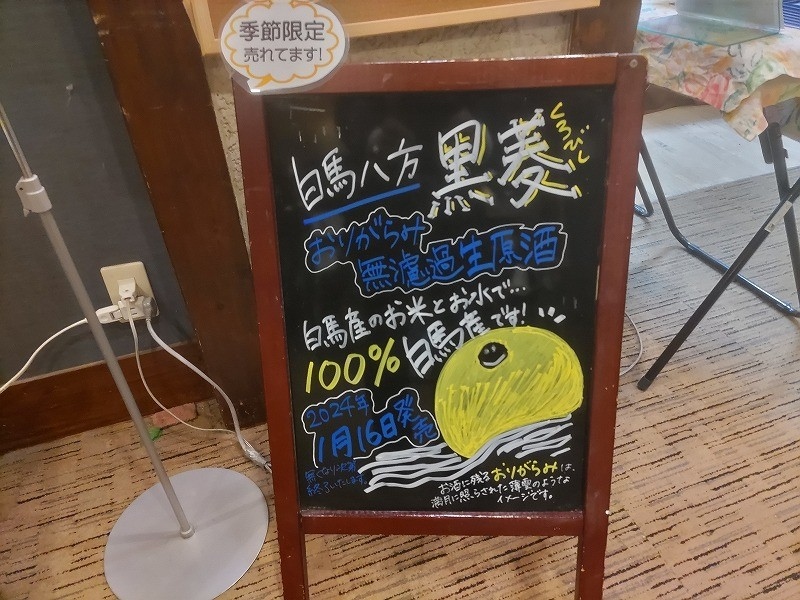 季節限定
売れてます!
白馬八方 黒菱 くろびし
おりがらみ
無濾過生原酒
白馬産のお米とお水で…
100%白馬産です!
2024年
1月16日発売
無くなり次第
終了いたします。
お酒に残るおりがらみは、
満月に照らされた薄雲のような
イメージです。